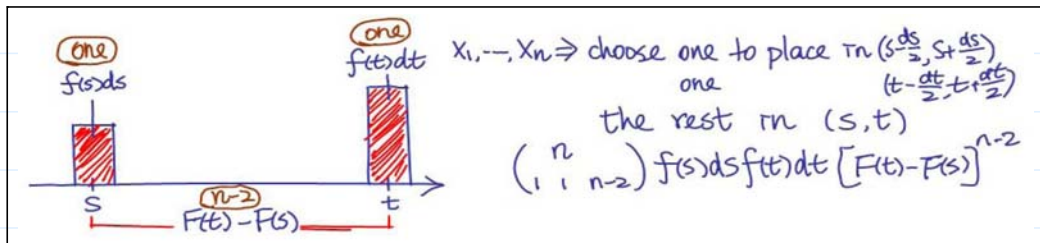 one
f(s)ds
one
f(t)dt
s
n-2
t
F(t)-F(s)
X₁,---,Xn ⇒ choose one to place in (s-ds/2, s+ds/2)
one (t-dt/2, t+dt/2)
the rest in (s,t)
(n
1 1 n-2) f(s)ds f(t)dt [F(t)-F(s)]^{n-2}